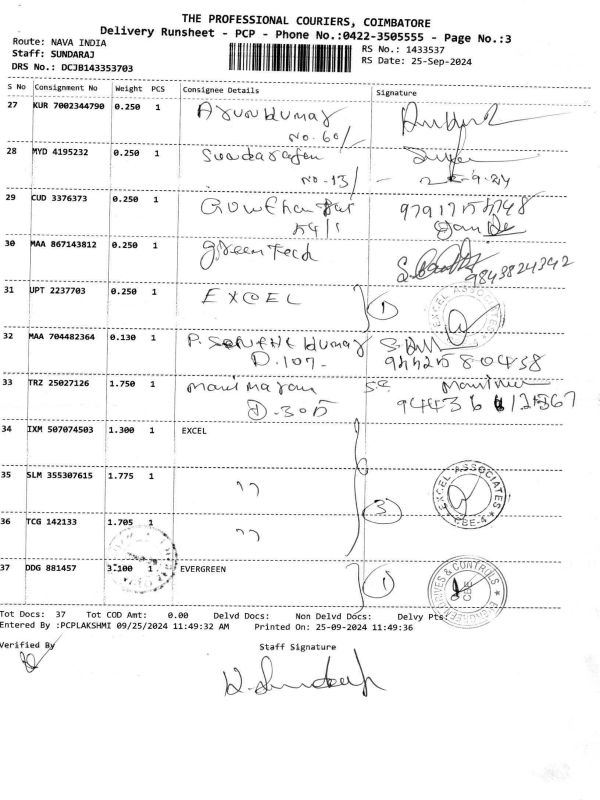 THE PROFESSIONAL COURIERS, COIMBATORE
Delivery Runsheet - PCP - Phone No.:0422-3505555 - Page No.:3
Route: NAVA INDIA
Staff: SUNDARAJ
DRS No.: DCJB143353703
RS No.: 1433537
RS Date: 25-Sep-2024
S No Consignment No Weight PCS Consignee Details Signature
27 KUR 7002344790 0.250 1 Arunkumar
No. 60/
28 MYD 4195232 0.250 1 Sundarajan
No-13/ - 25-9-24
29 CUD 3376373 0.250 1
54/1
30 MAA 867143812 0.250 1 greenTech
9843824342
31 UPT 2237703 0.250 1 EXCEL 1
EXCEL ASSOCIATES
32 MAA 704482364 0.130 1 P. Senthil kumar
D.107-
33 TRZ 25027126 1.750 1 manimaran
D.305
34 IXM 507074503 1.300 1 EXCEL
35 SLM 355307615 1.775 1 ,,
EXCEL ASSOCIATES
CBE-4
3
36 TCG 142133 1.705 1 ,,
37 DDG 881457 3.100 1 EVERGREEN 1
DRIVES & CONTROLS
CBE
Tot Docs: 37 Tot COD Amt: 0.00 Delvd Docs: Non Delvd Docs: Delvy Pts:
Entered By :PCPLAKSHMI 09/25/2024 11:49:32 AM Printed On: 25-09-2024 11:49:36
Verified By Staff Signature